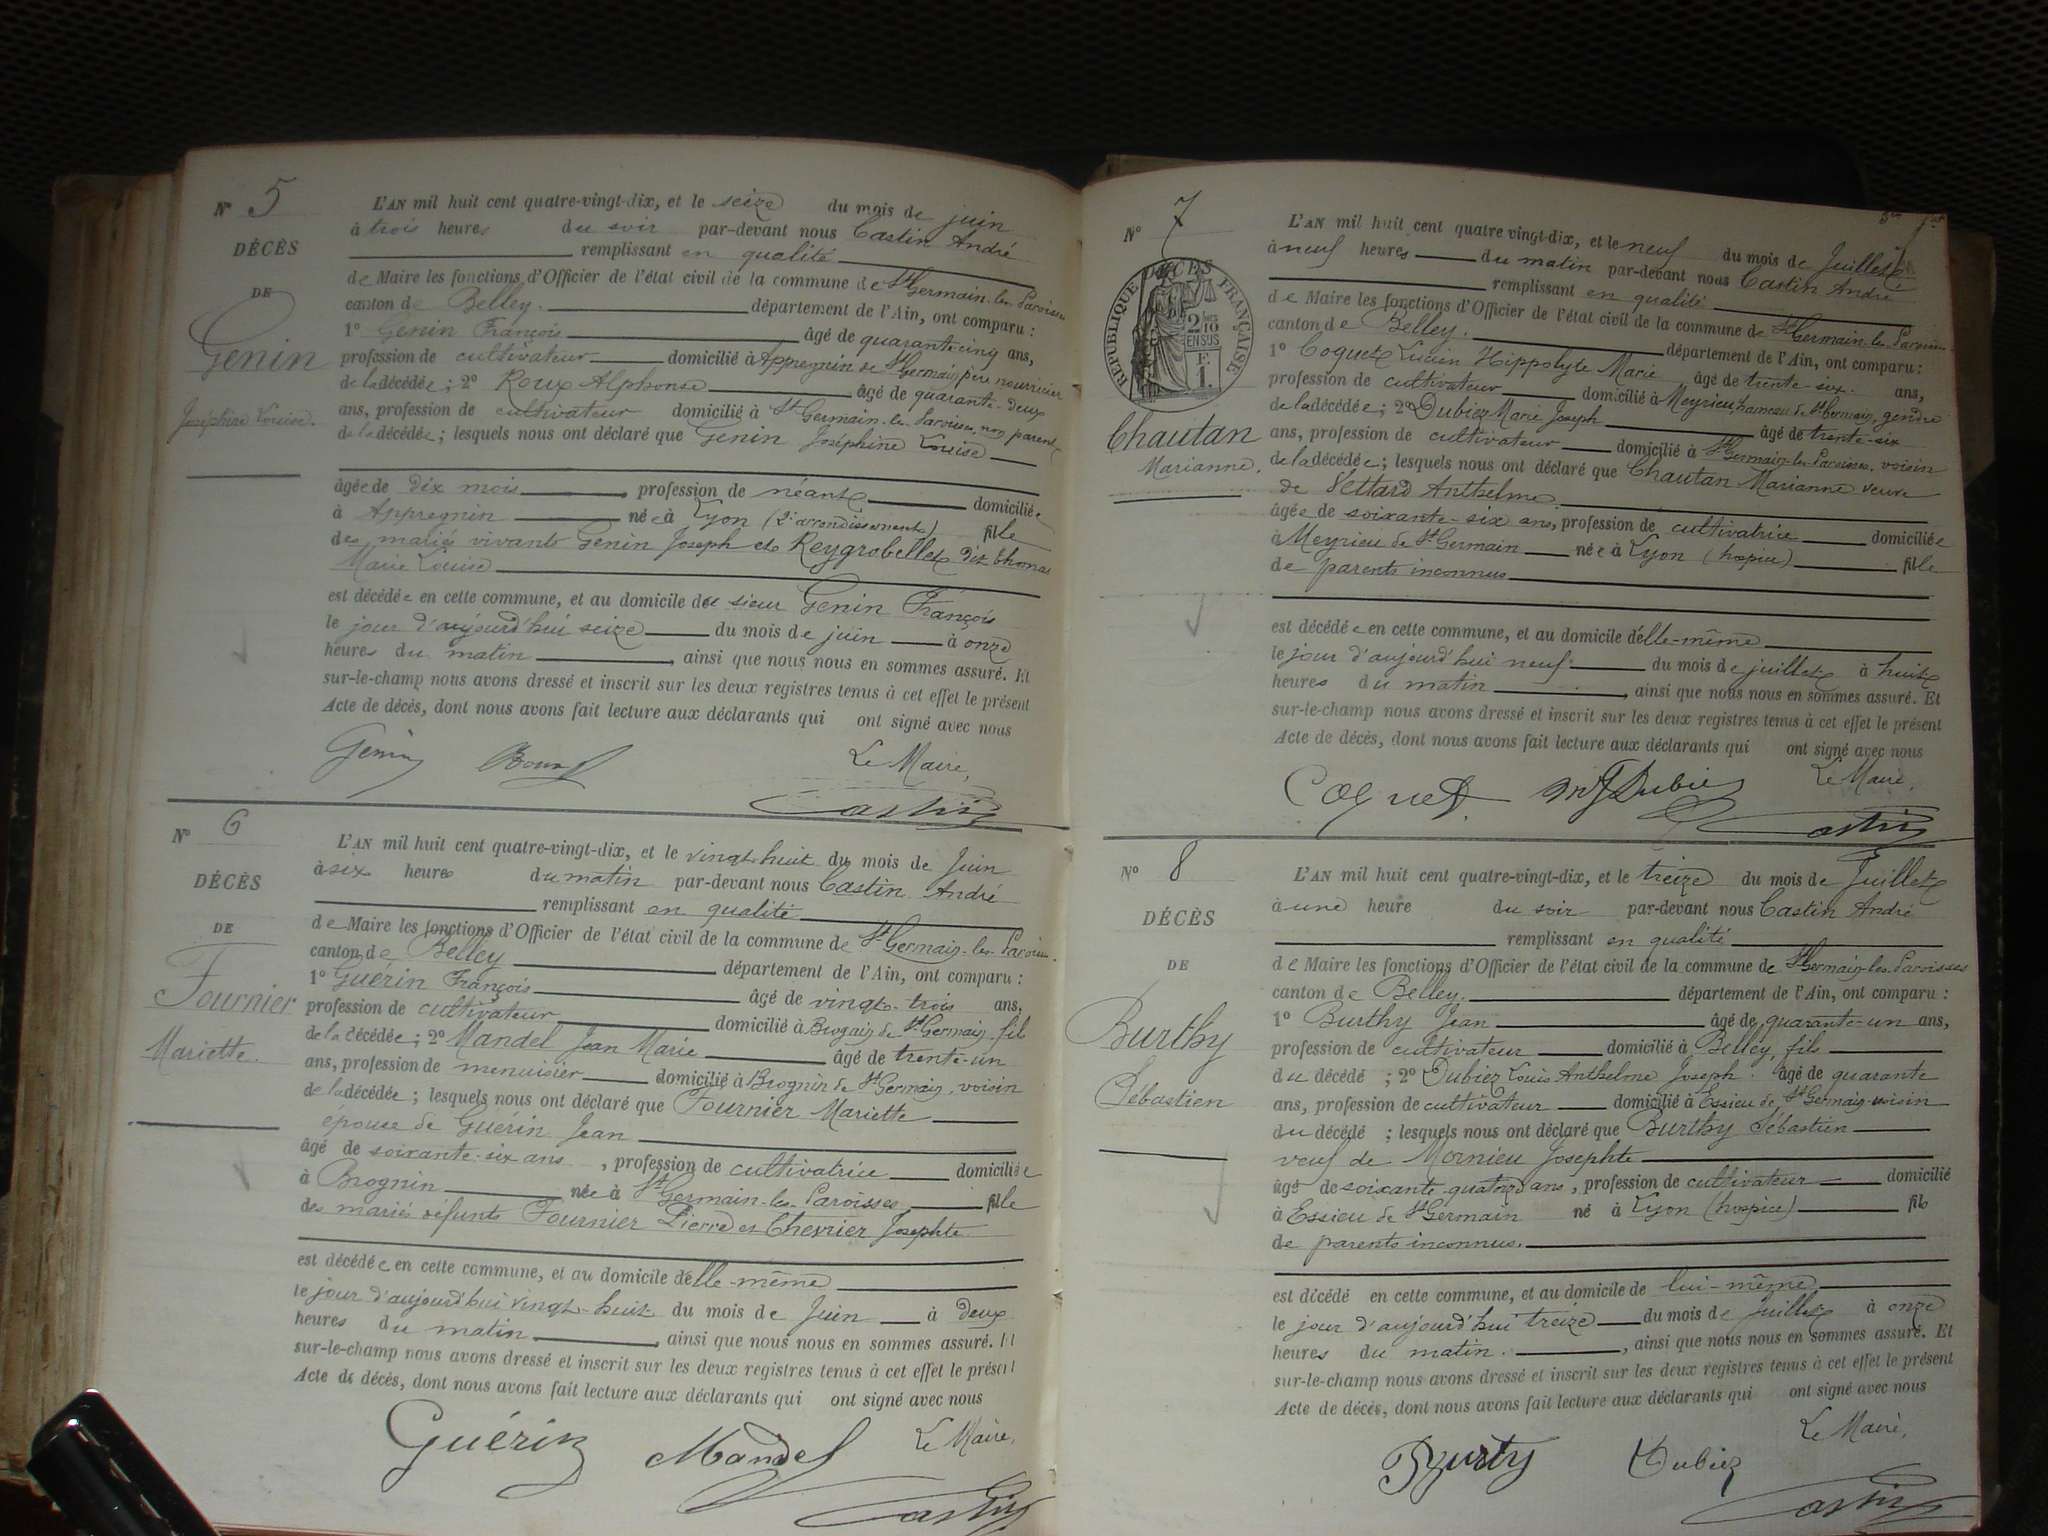 N° 5
DÉCÈS
DE
Genin
Joséphine Louise.
L'AN mil huit cent quatre-vingt-dix, et le seize du mois de juin
à trois heures du soir par-devant nous Castin André
remplissant en qualité
de Maire les fonctions d'Officier de l'état civil de la commune de St Germain-les-Paroisses
canton de Belley. département de l'Ain, ont comparu :
1° Genin François âgé de quarante-cinq ans,
profession de cultivateur domicilié à Appregnin de St Germain, père nourricier
de la décédée ; 2° Roux Alphonse âgé de quarante-deux
ans, profession de cultivateur domicilié à St Germain-les-Paroisses, non parent
de la décédée ; lesquels nous ont déclaré que Genin Joséphine Louise
âgée de dix mois, profession de néant domiciliée
à Appregnin née à Lyon (2e arrondissement) fille
des mariés vivants Genin Joseph et Reygrobellet dit Thomas
Marie Louise
est décédée en cette commune, et au domicile du sieur Genin François
le jour d'aujourd'hui seize du mois de juin à onze
heures du matin, ainsi que nous nous en sommes assuré. Et
sur-le-champ nous avons dressé et inscrit sur les deux registres tenus à cet effet le présent
Acte de décès, dont nous avons fait lecture aux déclarants qui ont signé avec nous
Le Maire,
Genin Roux Castin
N° 6
DÉCÈS
DE
Fournier
Mariette.
L'AN mil huit cent quatre-vingt-dix, et le vingt-huit du mois de Juin
à six heures du matin par-devant nous Castin André
remplissant en qualité
de Maire les fonctions d'Officier de l'état civil de la commune de St Germain-les-Paroisses
canton de Belley département de l'Ain, ont comparu :
1° Guérin François âgé de vingt-trois ans,
profession de cultivateur domicilié à Brognin de St Germain, fils
de la décédée ; 2° Mandel Jean Marie âgé de trente-un
ans, profession de menuisier domicilié à Brognin de St Germain, voisin
de la décédée ; lesquels nous ont déclaré que Fournier Mariette
épouse de Guérin Jean
âgé de soixante-six ans, profession de cultivatrice domiciliée
à Brognin née à St Germain-les-Paroisses fille
des mariés défunts Fournier Pierre et Chevrier Josephte
est décédée en cette commune, et au domicile d'elle-même
le jour d'aujourd'hui vingt-huit du mois de Juin à deux
heures du matin, ainsi que nous nous en sommes assuré. Et
sur-le-champ nous avons dressé et inscrit sur les deux registres tenus à cet effet le présent
Acte de décès, dont nous avons fait lecture aux déclarants qui ont signé avec nous
Le Maire,
Guérin Mandel Castin
N° 7
RÉPUBLIQUE FRANÇAISE
2/10 EN SUS
F
1.
DÉCÈS
Chautan
Marianne.
L'AN mil huit cent quatre-vingt-dix, et le neuf du mois de Juillet
à neuf heures du matin par-devant nous Castin André
remplissant en qualité
de Maire les fonctions d'Officier de l'état civil de la commune de St Germain-les-Paroisses
canton de Belley. département de l'Ain, ont comparu :
1° Coquet Lucien Hippolyte Marie âgé de trente-six ans,
profession de cultivateur domicilié à Meyrieu, hameau de St Germain, gendre
de la décédée ; 2° Dubiez Marie Joseph âgé de trente-six
ans, profession de cultivateur domicilié à St Germain-les-Paroisses, voisin
de la décédée ; lesquels nous ont déclaré que Chautan Marianne veuve
de Vettard Anthelme
âgée de soixante-six ans, profession de cultivatrice domiciliée
à Meyrieu de St Germain née à Lyon (hospice) fille
de parents inconnus
est décédée en cette commune, et au domicile d'elle-même
le jour d'aujourd'hui neuf du mois de juillet à huit
heures du matin, ainsi que nous nous en sommes assuré. Et
sur-le-champ nous avons dressé et inscrit sur les deux registres tenus à cet effet le présent
Acte de décès, dont nous avons fait lecture aux déclarants qui ont signé avec nous
Le Maire,
Coquet MJ Dubiez Castin
N° 8
DÉCÈS
DE
Burthy
Sébastien
L'AN mil huit cent quatre-vingt-dix, et le treize du mois de Juillet
à une heure du soir par-devant nous Castin André
remplissant en qualité
de Maire les fonctions d'Officier de l'état civil de la commune de St Germain-les-Paroisses
canton de Belley. département de l'Ain, ont comparu :
1° Burthy Jean âgé de quarante-un ans,
profession de cultivateur domicilié à Belley, fils
du décédé ; 2° Dubiez Louis Anthelme Joseph. âgé de quarante
ans, profession de cultivateur domicilié à Essieu de St Germain voisin
du décédé ; lesquels nous ont déclaré que Burthy Sébastien
veuf de Mornieu Josephte
âgé de soixante-quatorze ans, profession de cultivateur domicilié
à Essieu de St Germain né à Lyon (hospice) fils
de parents inconnus.
est décédé en cette commune, et au domicile de lui-même
le jour d'aujourd'hui treize du mois de juillet à onze
heures du matin., ainsi que nous nous en sommes assuré. Et
sur-le-champ nous avons dressé et inscrit sur les deux registres tenus à cet effet le présent
Acte de décès, dont nous avons fait lecture aux déclarants qui ont signé avec nous
Le Maire,
Burty Dubiez Castin